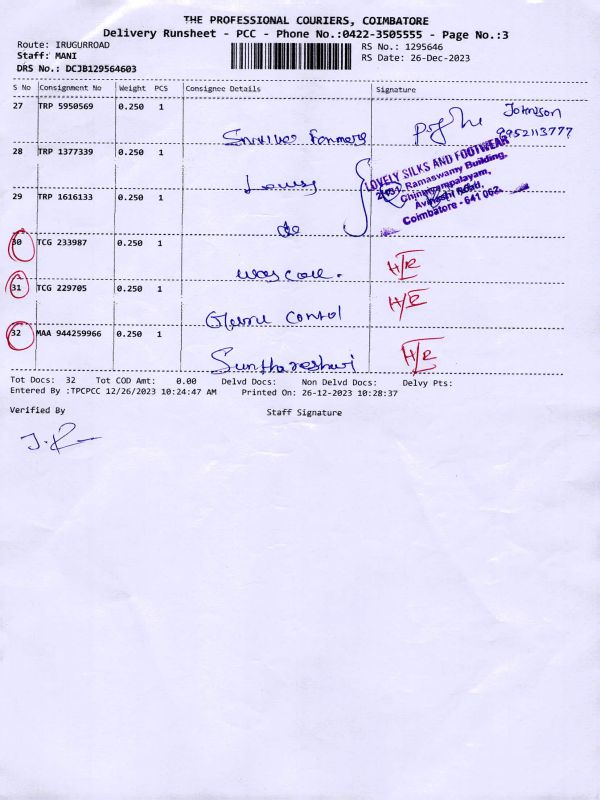 THE PROFESSIONAL COURIERS, COIMBATORE
Delivery Runsheet - PCC - Phone No.:0422-3505555 - Page No.:3
Route: IRUGURROAD
RS No.: 1295646
Staff: MANI
RS Date: 26-Dec-2023
DRS No.: DCJB129564603
S No Consignment No Weight PCS Consignee Details Signature
27 TRP 5950569 0.250 1 Johnson
9952113777
28 TRP 1377339 0.250 1
LOVELY SILKS AND FOOTWEAR
Ramaswamy Building,
Chinniyampalayam,
Avinashi Road,
Coimbatore - 641 062.
29 TRP 1616133 0.250 1
do
30 TCG 233987 0.250 1 H/R
31 TCG 229705 0.250 1 H/R
Control
32 MAA 944259966 0.250 1 H/R
Sunthareshwri
Tot Docs: 32 Tot COD Amt: 0.00 Delvd Docs: Non Delvd Docs: Delvy Pts:
Entered By :TPCPCC 12/26/2023 10:24:47 AM Printed On: 26-12-2023 10:28:37
Verified By Staff Signature